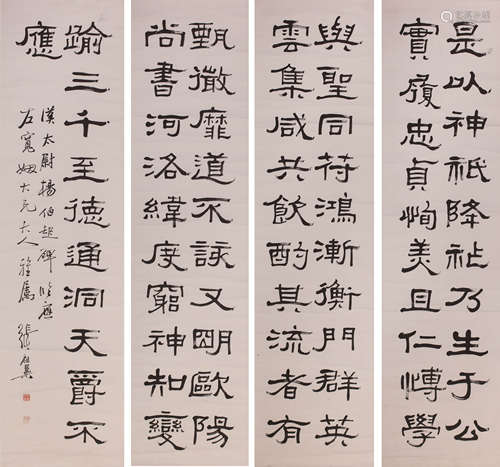 是以神祇降祉乃生于公
實履忠貞恂美且仁博學
甄徹靡道不該又朙歐陽
尚書河洛緯度窮神知變
與聖同符鴻漸衡門群英
雲集咸共飲酌其流者有
踰三千至德通洞天爵不
應
漢太尉楊伯起碑 臨應
右寬
大兄大人雅屬 張